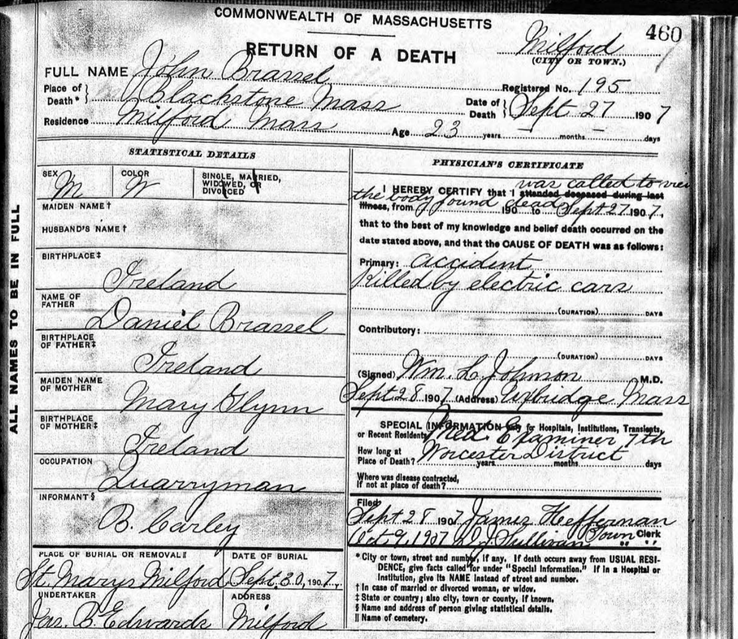 COMMONWEALTH OF MASSACHUSETTS
460
RETURN OF A DEATH
Milford
(CITY OR TOWN.)
FULL NAME John Brassel
Registered No. 195
Place of Death * } Blackstone Mass
Date of Death } Sept 27 1907
Residence Milford Mass
Age 23 years – months – days
ALL NAMES TO BE IN FULL
STATISTICAL DETAILS
SEX M
COLOR W
SINGLE, MARRIED, WIDOWED, OR DIVORCED
MAIDEN NAME †
HUSBAND'S NAME †
BIRTHPLACE ‡
Ireland
NAME OF FATHER
Daniel Brassel
BIRTHPLACE OF FATHER ‡
Ireland
MAIDEN NAME OF MOTHER
Mary Glynn
BIRTHPLACE OF MOTHER ‡
Ireland
OCCUPATION
Quarryman
INFORMANT §
B. Carley
PLACE OF BURIAL OR REMOVAL ‖
St. Marys Milford
DATE OF BURIAL
Sept. 30, 1907.
UNDERTAKER
Jas. B. Edwards
ADDRESS
Milford
PHYSICIAN'S CERTIFICATE
was called to view
I HEREBY CERTIFY that I attended deceased during last
the body found dead
illness, from 190 to Sept 27 1907,
that to the best of my knowledge and belief death occurred on the
date stated above, and that the CAUSE OF DEATH was as follows:
Primary: accident
Killed by electric cars
(DURATION) DAYS
Contributory:
(DURATION) DAYS
(Signed) Wm. L. Johnson M.D.
Sept 28 1907 (Address) Uxbridge Mass
SPECIAL INFORMATION only for Hospitals, Institutions, Transients,
or Recent Residents
Med. Examiner 7th
Worcester District
How long at Place of Death? years months days
Where was disease contracted,
if not at place of death?
Filed
Sept 28 1907 James Heffernan
Town Clerk
Oct 9, 1907 Sullivan " "
* City or town, street and number, if any. If death occurs away from USUAL RESI-
DENCE, give facts called for under "Special Information." If in a Hospital or
Institution, give its NAME instead of street and number.
† In case of married or divorced woman, or widow.
‡ State or country; also city, town or county, if known.
§ Name and address of person giving statistical details.
‖ Name of cemetery.